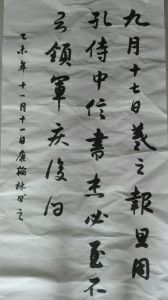 九月十七日羲之報且因
孔侍中信書想必至不
知領軍疾後問
乙未年十一月十一日